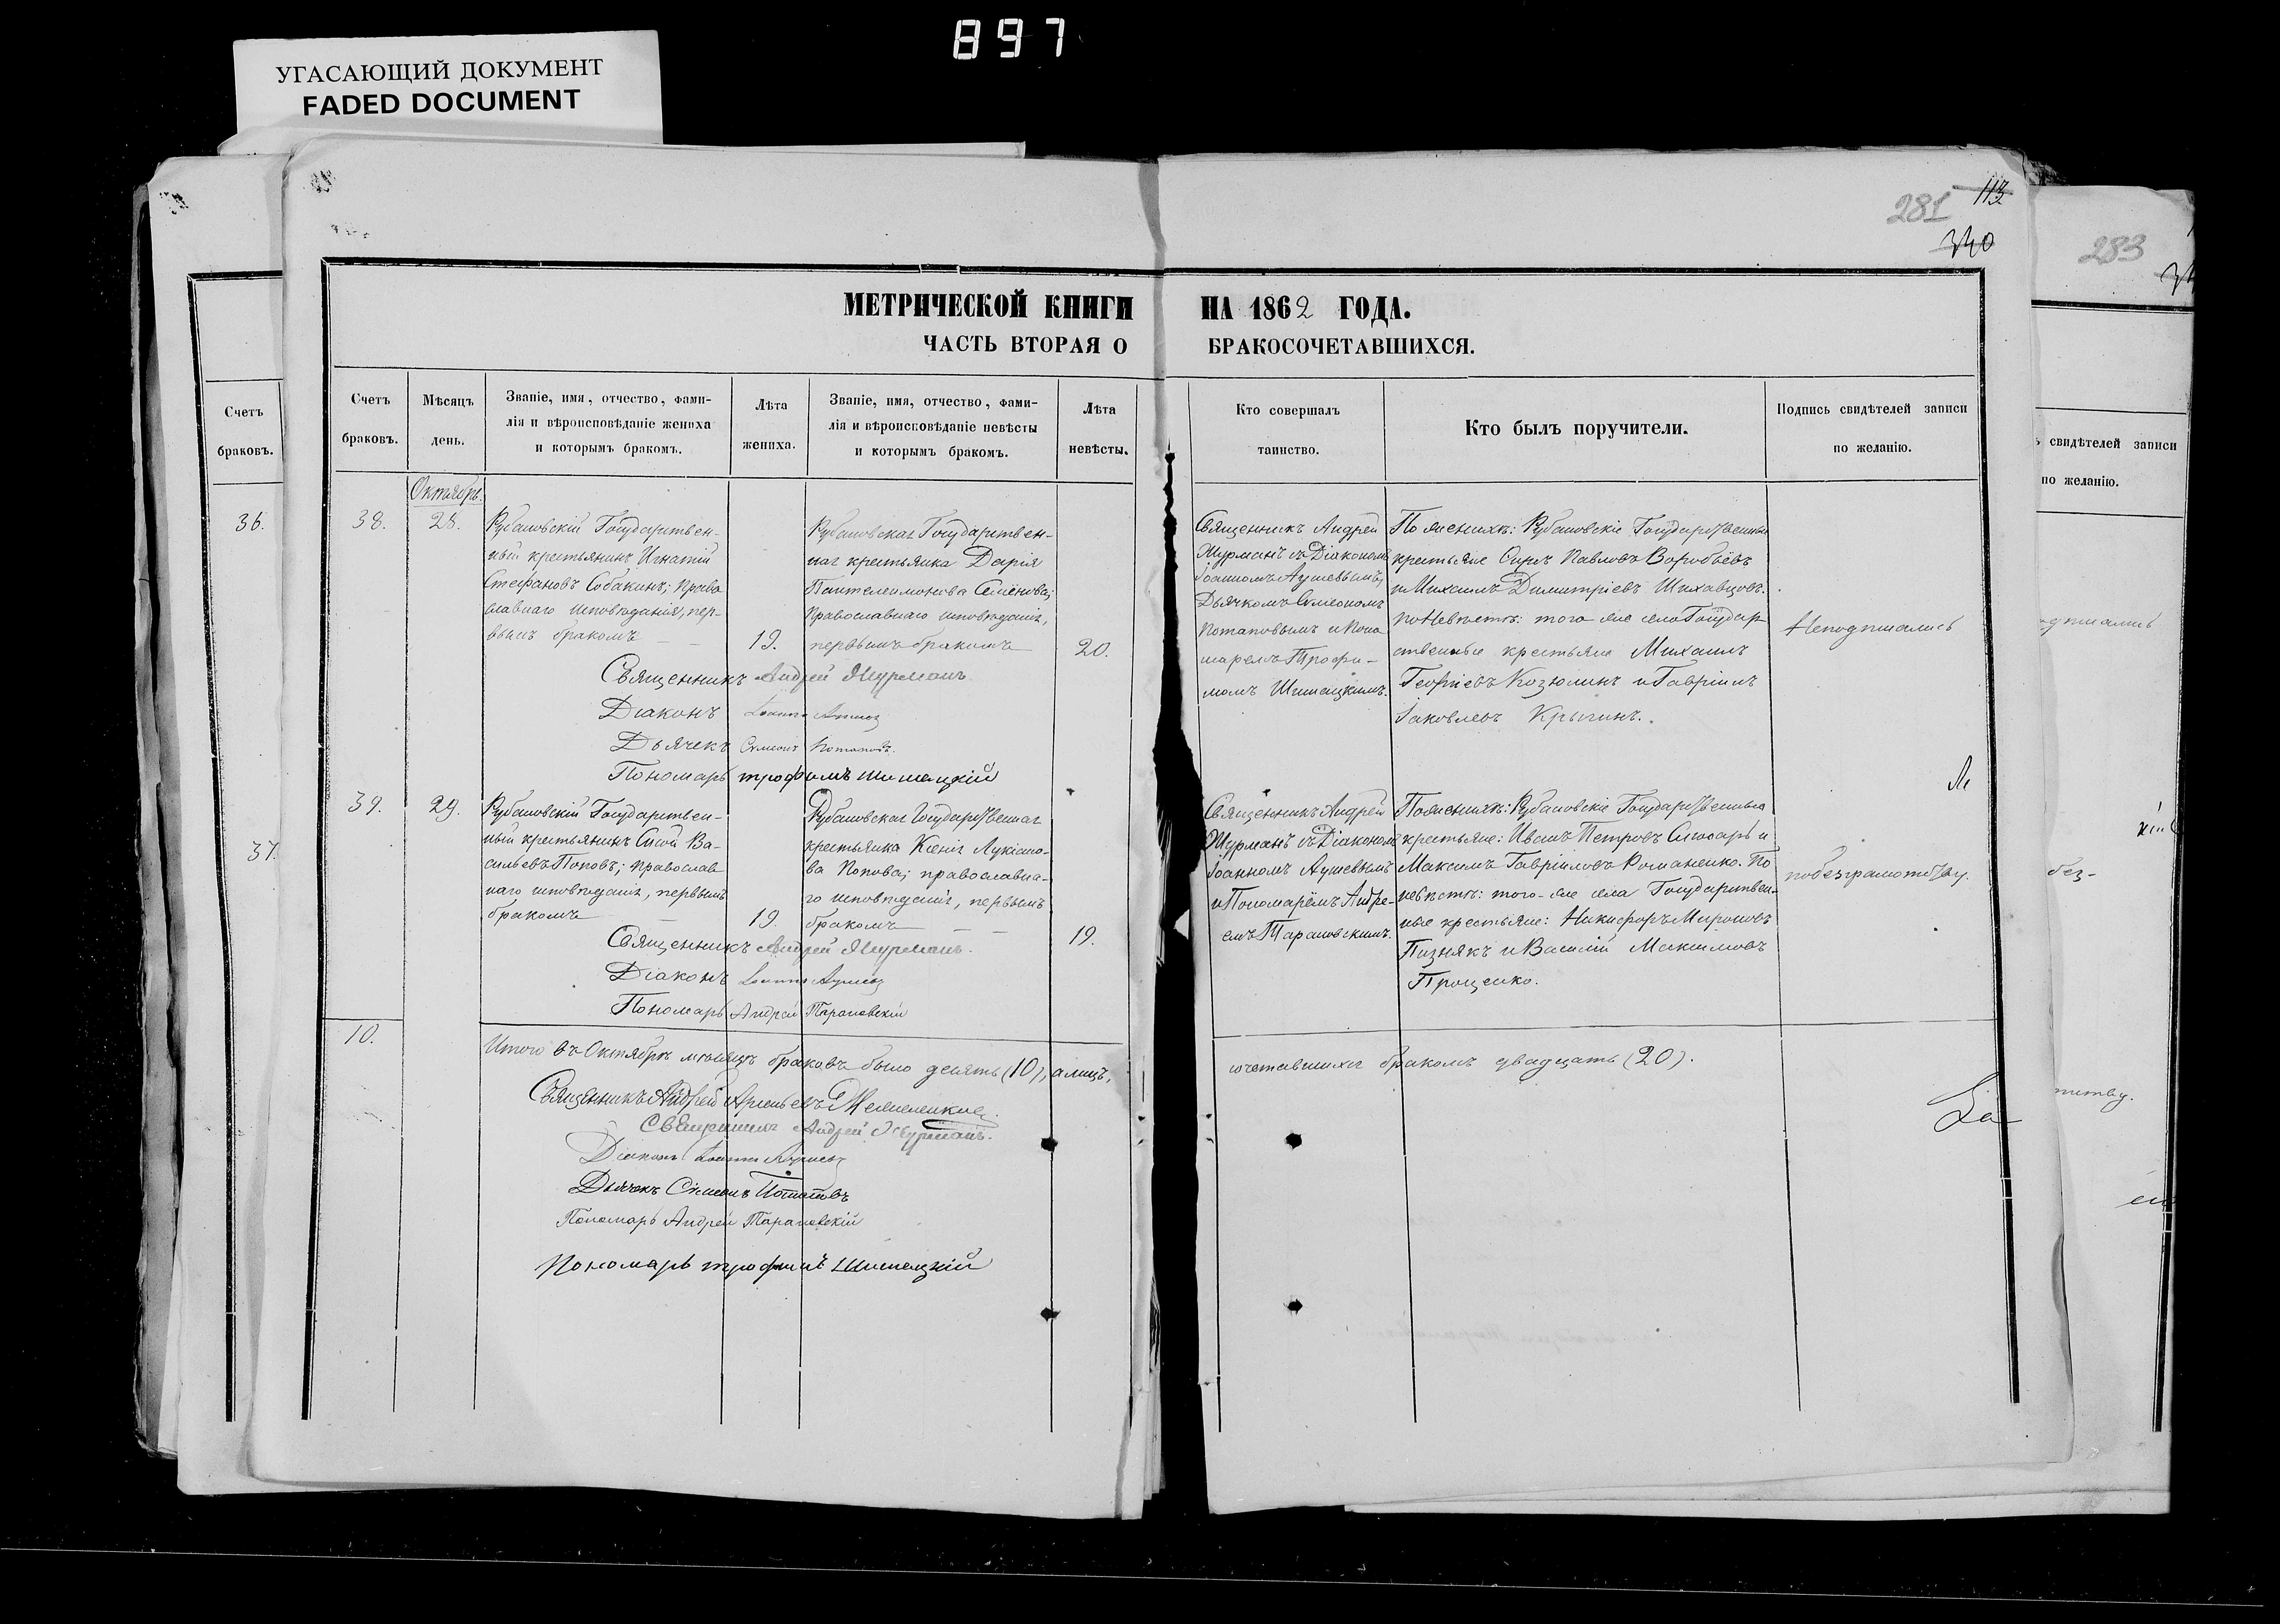 897
УГАСАЮЩИЙ ДОКУМЕНТ
FADED DOCUMENT
113
281
340
283
МЕТРИЧЕСКОЙ КНИГИ НА 1862 ГОДА.
ЧАСТЬ ВТОРАЯ О БРАКОСОЧЕТАВШИХСЯ.
Счетъ
браковъ.
36.
37.
Счетъ
браковъ.
Мѣсяцъ
день.
Званіе, имя, отчество, фами-
лія и вѣроисповѣданіе жениха
и которымъ бракомъ.
Лѣта
жениха.
Званіе, имя, отчество, фами-
лія и вѣроисповѣданіе невѣсты
и которымъ бракомъ.
Лѣта
невѣсты.
Кто совершалъ
таинство.
Кто былъ поручители.
Подпись свидѣтелей записи
по желанію.
свидѣтелей записи
по желанію.
Октябрь.
38.
28.
Рубановскій Государствен-
ный крестьянинъ Игнатій
Стефановъ Собакинъ; Право
славнаго исповѣданія, пер-
вымъ бракомъ
19.
Рубановская Государствен-
ная крестьянка Дарія
Пантелеимонова Семёнова;
Православнаго исповѣданія,
первымъ бракомъ
20.
Священникъ Андрей
Журманъ съ Діакономъ
Іоанномъ
Дьячкомъ Симеономъ
Потаповымъ и Поно
маремъ Трофи-
момъ Шишацкимъ.
По женихѣ: Рубановскіе Государственные
крестьяне Павловъ Воробьёвъ
и Михаилъ Димитріевъ
по Невѣстѣ: того же села Государ
ственные крестьяне Михаилъ
Георгіевъ Козюлинъ и Гавріилъ
Іаковлевъ Крыгинъ.
Неподписались
Священникъ Андрей Журманъ
Діаконъ Іоаннъ
Дьячекъ Симеонъ Потаповъ.
Пономарь трофимъ шишацкій
39.
29.
Рубановскій Государствен-
ный крестьянинъ Сисой Ва-
сильевъ Поповъ; православ
наго исповѣданія, первымъ
бракомъ
19.
Рубановская Государственная
крестьянка Ксенія Лукіано-
ва Попова; православна-
го исповѣданія, первымъ
бракомъ
19.
Священникъ Андрей
Журманъ съ Діакономъ
Іоанномъ
и Пономарёмъ Андре-
емъ Тарановскимъ.
По женихѣ: Рубановскіе Государственные
крестьяне: Иванъ Петровъ Слюсарь и
Максимъ Гавріиловъ Романенко. По
невѣстѣ: того-же села Государствен-
ные крестьяне: Никифоръ Мироновъ
Пизнякъ и Василій Максимовъ
Проценко.
побезграмотству.
без-
Священникъ Андрей Журманъ.
Діаконъ Іоаннъ
Пономарь Андрей Тарановскій
10.
Итого въ Октябрѣ мѣсяцѣ браковъ было десять (10), а лицъ,
сочетавшихся бракомъ двадцать (20).
Священникъ Андрей
Священникъ Андрей Журманъ.
Діаконъ Іоаннъ
Дьячекъ Симеонъ Потаповъ
Пономарь Андрей Тарановскій
Пономарь трофимъ Шишацкій